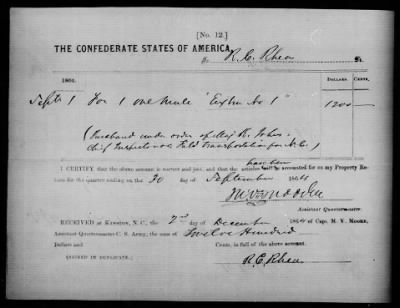 [No. 12.]
THE CONFEDERATE STATES OF AMERICA,
To R. C. Rhea Dr.
1864. DOLLARS. CENTS.
Sept 1 For 1 one Mule "Extra No 1" 1200
(Purchased under order of Maj
Chief Inspector Field Transportation for N.C.)
I CERTIFY that the above account is correct and just, and that the articles have been accounted for on my Property Re-
turn for the quarter ending on the 30 day of September 1864
M V Moore
Assistant Quartermaster.
RECEIVED at Kinston, N. C., the 2nd day of December 1864 of Capt. M. V. Moore,
Assistant Quartermaster C. S. Army, the sum of Twelve Hundred
Dollars and Cents, in full of the above account.
(SIGNED IN DUPLICATE.) R. C. Rhea